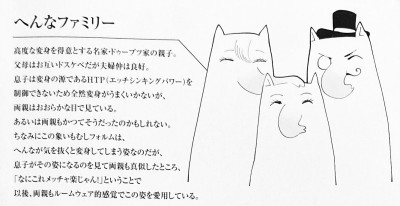 へんなファミリー
高度な変身を得意とする名家・ドゥーブツ家の親子。
父母はお互いドスケベだが夫婦仲は良好。
息子は変身の源であるHTP(エッチシンキングパワー)を
制御できないため全然変身がうまくいかないが、
両親はおおらかな目で見ている。
あるいは両親もかつてそうだったのかもしれない。
ちなみにこの象いもむしフォルムは、
へんなが気を抜くと変身してしまう姿なのだが、
息子がその姿になるのを見て両親も真似したところ、
「なにこれメッチャ楽じゃん!」ということで
以後、両親もルームウェア的感覚でこの姿を愛用している。